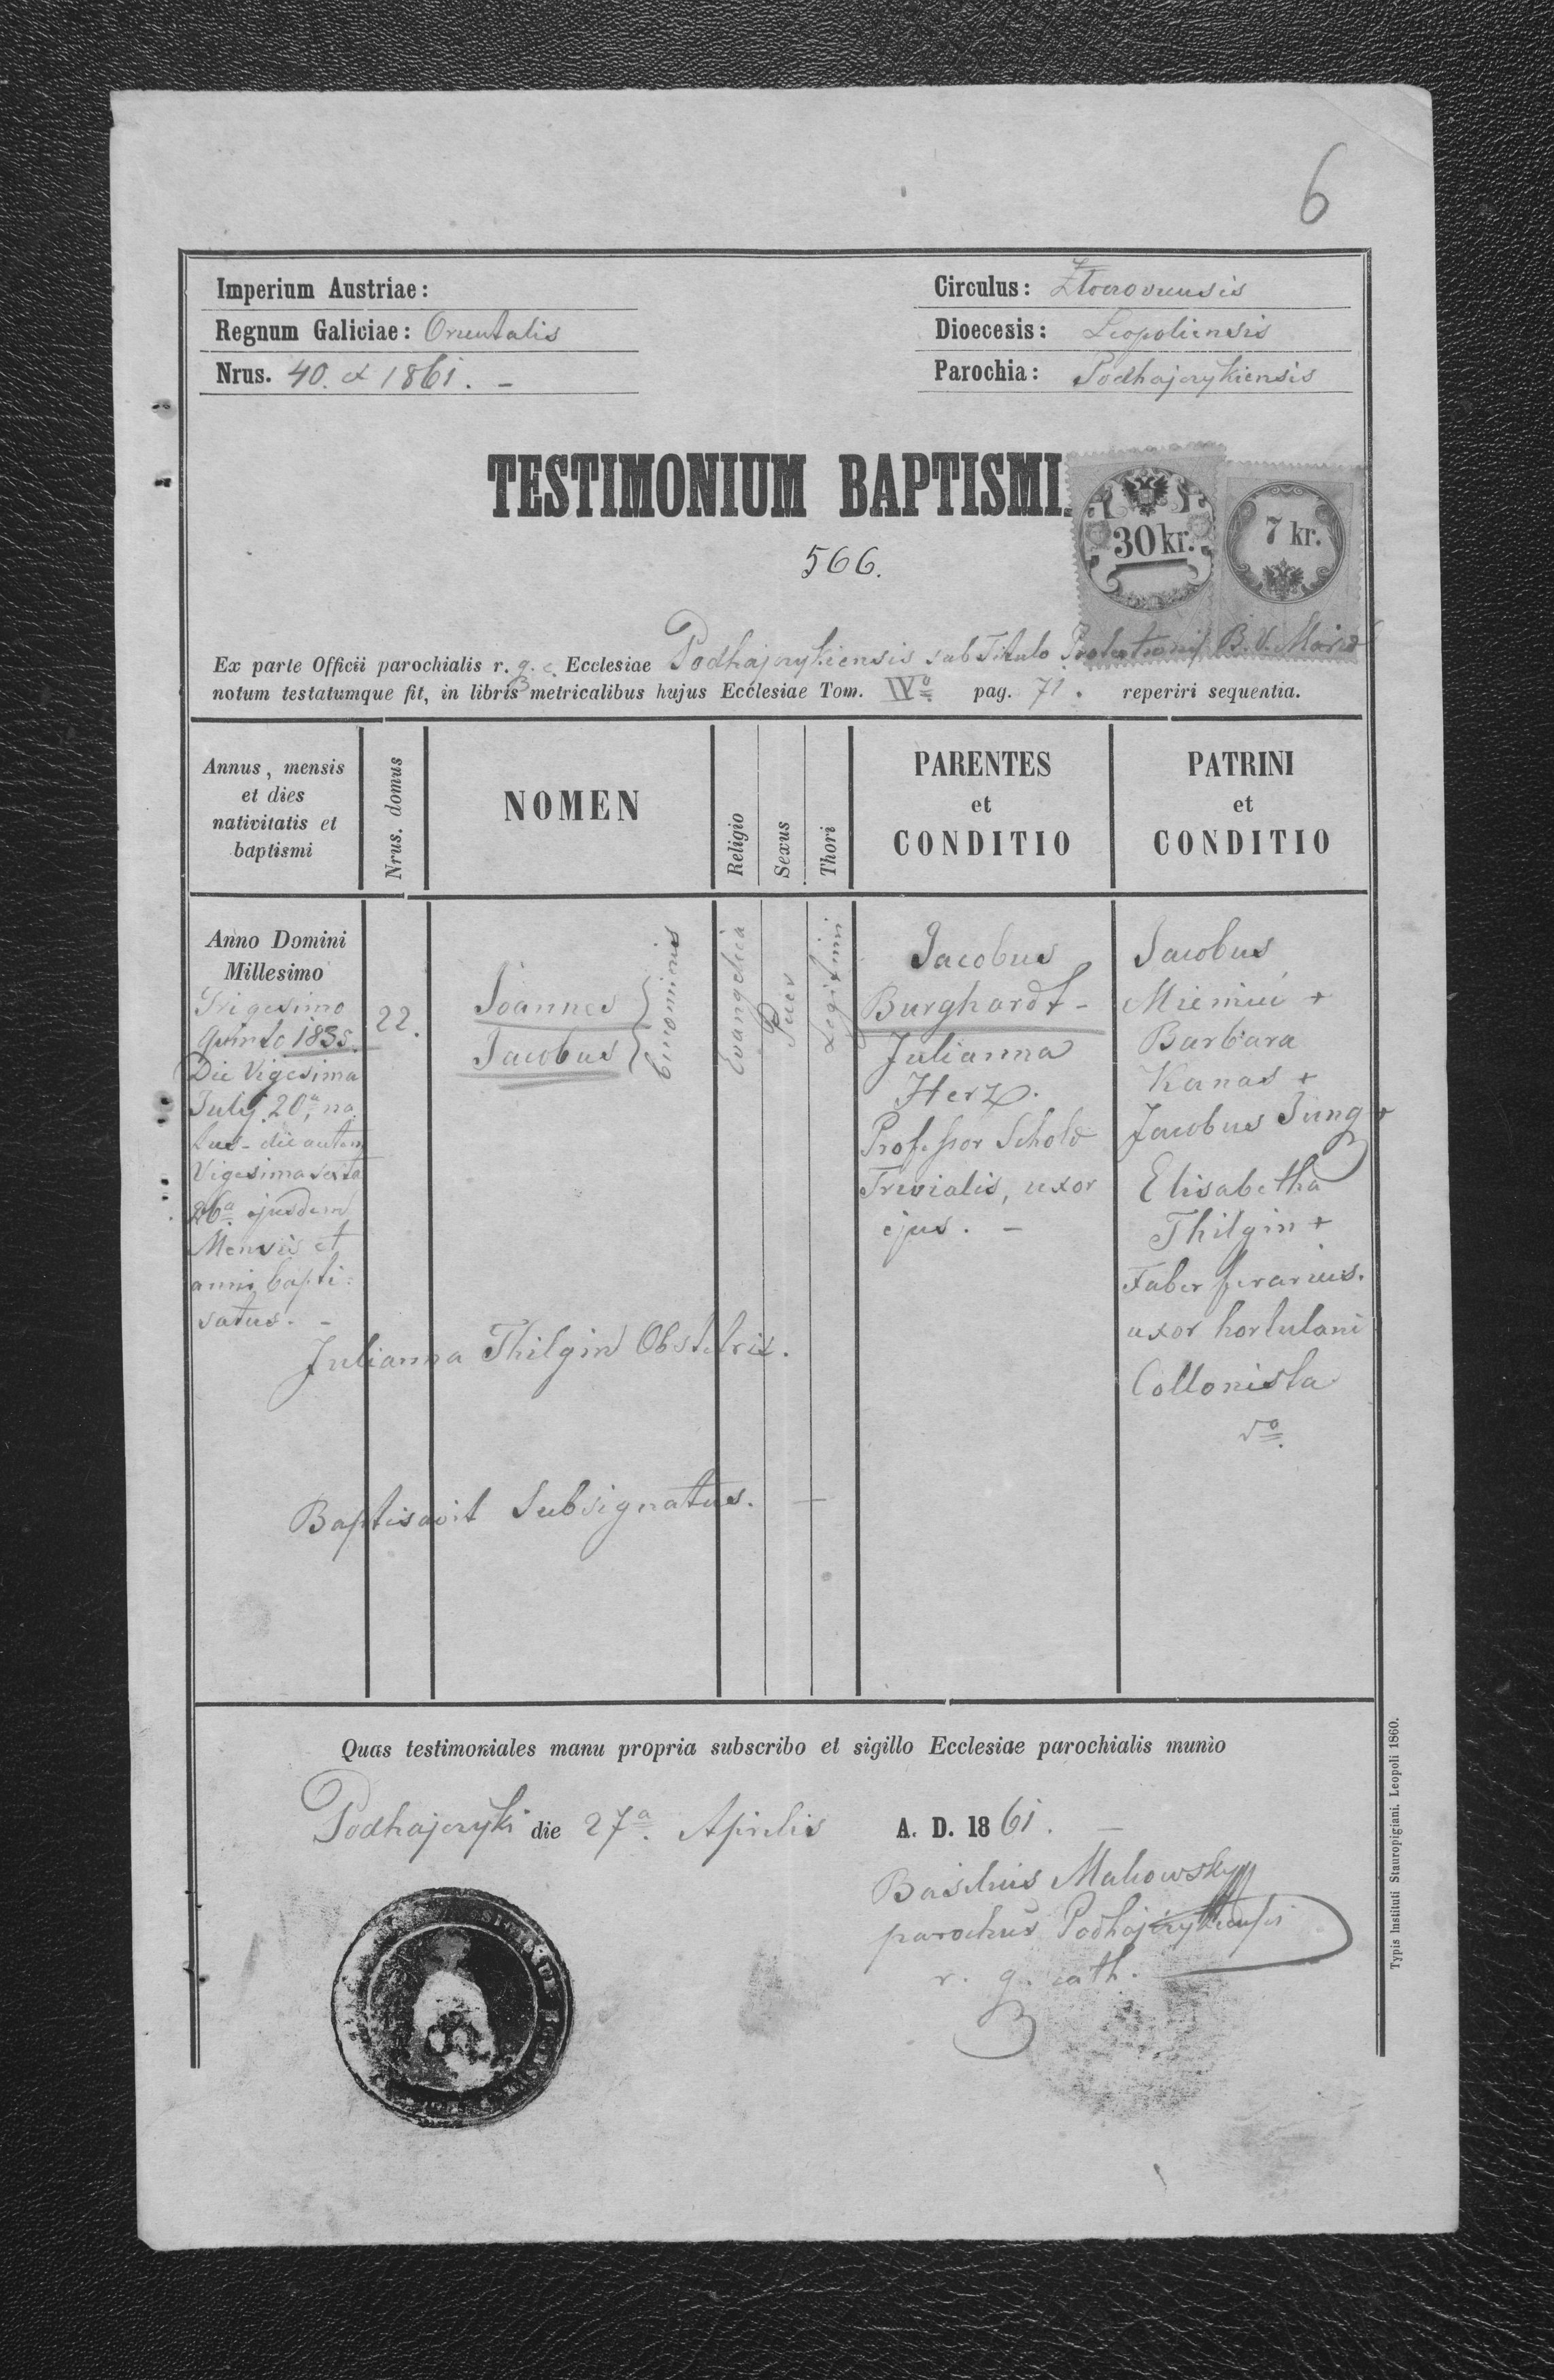 6
Imperium Austriae:
Regnum Galiciae: Orientalis
Nrus. 40. ex 1861. -
Circulus: Złoczoviensis
Dioecesis: Leopoliensis
Parochia: Podhajczykiensis
TESTIMONIUM BAPTISMI.
30 kr.
7 kr.
566.
Ex parte Officii parochialis r. g. c. Ecclesiae Podhajczykiensis sub Titulo Protectionis B. V. Maria
notum testatumque fit, in libris metricalibus hujus Ecclesiae Tom. IVo pag. 71. reperiri sequentia.
Annus, mensis
et dies
nativitatis et
baptismi
Nrus. domus
NOMEN
Religio
Sexus
Thori
PARENTES
et
CONDITIO
PATRINI
et
CONDITIO
Anno Domini
Millesimo
Trigesimo
quinto 1835.
Die Vigesima
July 20a na
tus - die autem
Vigesima sexta
26a ejusdem
Mensis et
anni bapti:
satus. -
22.
Joannes
Jacobus
binominis
Evangelica
Puer
Legitimi
Jacobus
Burghardt -
Julianna
Herz.
Professor Schola
Trivialis, uxor
ejus. -
Jacobus
+
Barbara
Kanas +
Jacobus Jung +
Elisabetha
Thilgin +
Faber ferarius.
uxor hortulani
Collonista
Julianna Thilgin Obstetrix.
Baptisavit Subsignatus. -
Quas testimoniales manu propria subscribo et sigillo Ecclesiae parochialis munio
Podhajczyki die 27a. Aprilis A. D. 1861. -
Basilius Makowsky
parochus Podhajczykiensis
r. g. cath.
Typis Instituti Stauropigiani. Leopoli 1860.